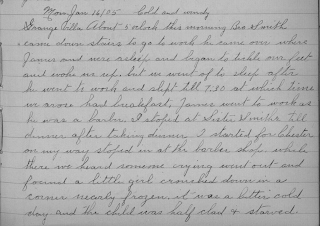 Mon, Jan. 16/05 Cold and windy
Grange Villa About 5 oclock this morning Geo Smith
came down stairs to go to work he came over where
James and I were asleep and began to tickle our feet
and woke us up. but we went of to sleep after
he went to work and slept till 7.30 at which time
we arose had breakfast, James went to work as
he was a barber. I stoped at Sister Smiths till
dinner after taking dinner I started for Chester
on my way stoped in at the barber shop. while
there we heard someone crying went out and
found a little girl crouched down in a
corner nearly frozen, it was a bitter cold
day and the child was half clad & starved.